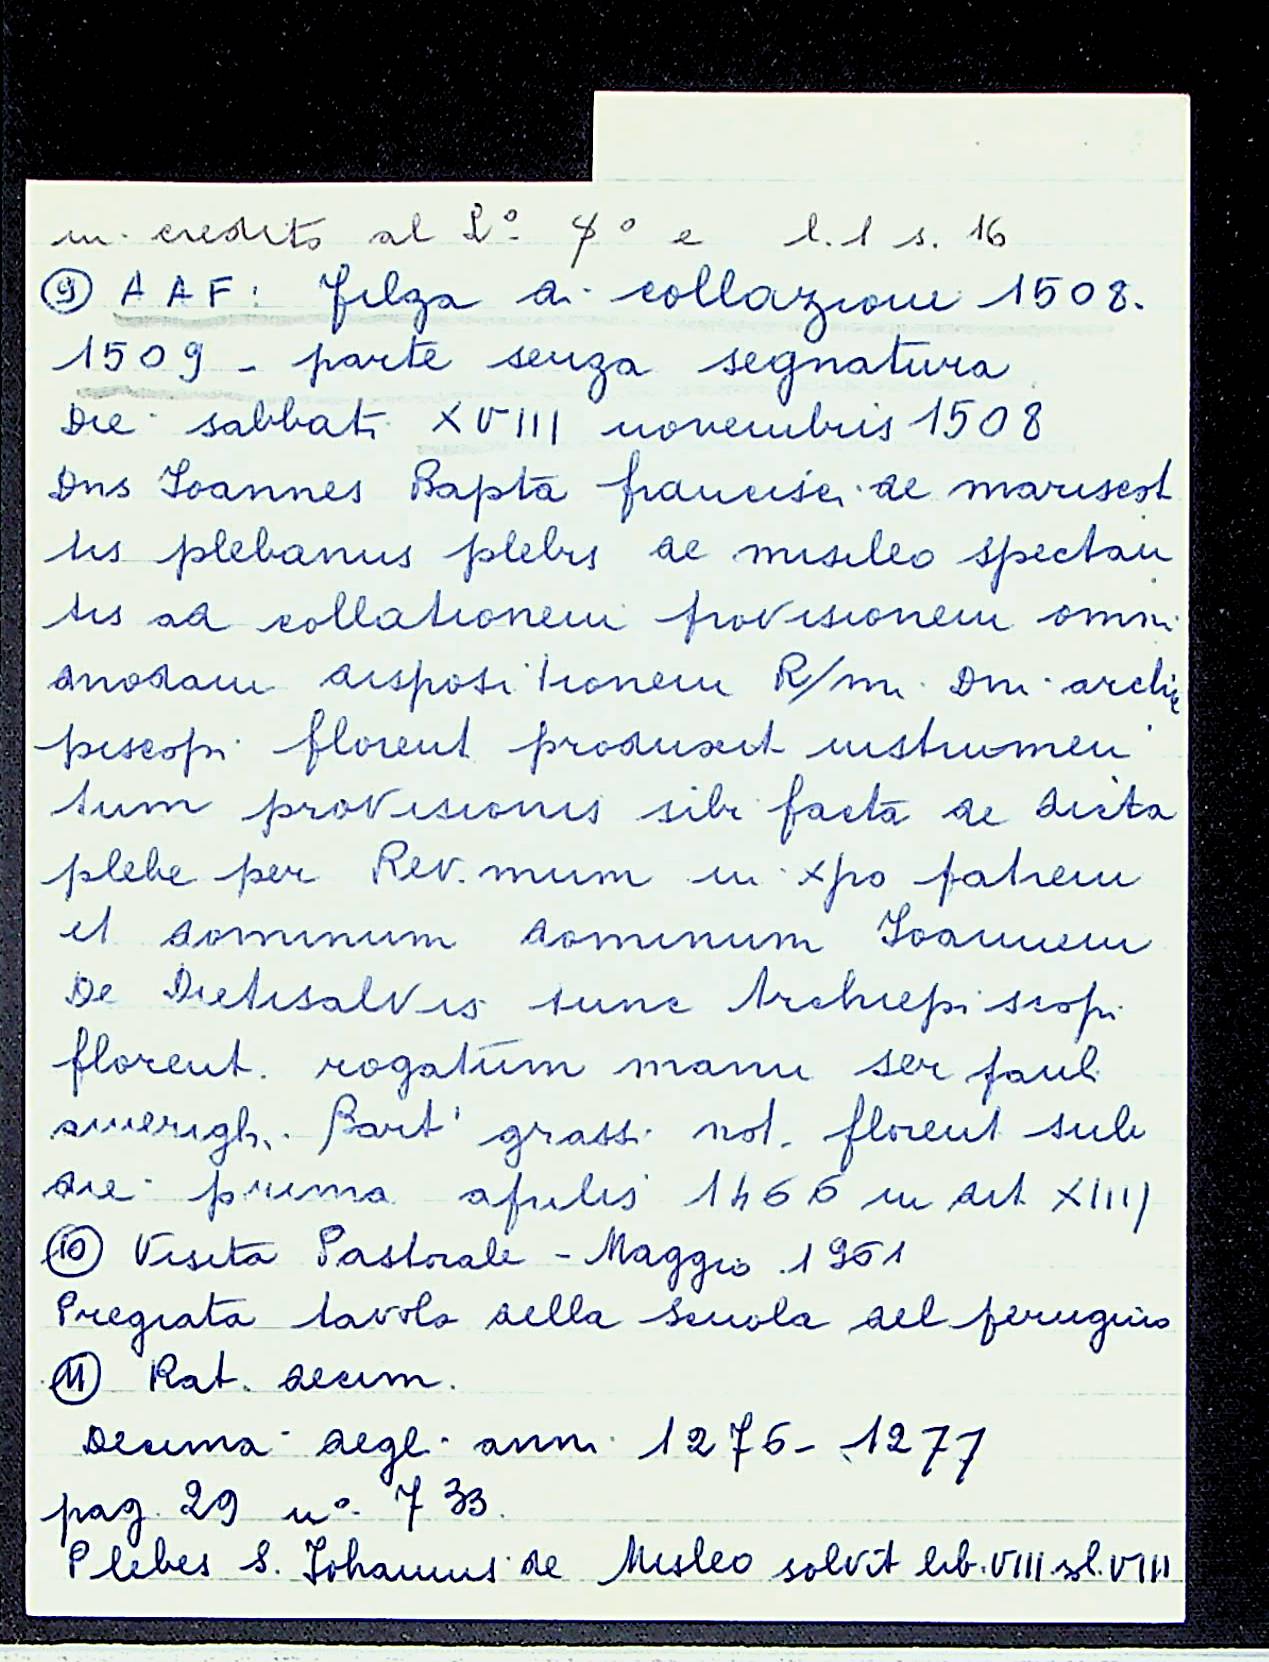 in credito al L° 4° e l. 1 s. 16
⑨ AAF: filza di collazioni 1508.
1509 - parte senza segnatura
Die sabbati XVIII novembris 1508
Dns Ioannes Baptā francisci de mariscot
tis plebanus plebis de misileo spectan
tis ad collationem provisionem omni
modam dispositionem R/mi Dni archie
piscopi florent produxit instrumen
tum provisionis sibi factā de dicta
plebe per Rev.mum in xpo patrem
et dominum dominum Ioannem
De Dietisalvis tunc Archiepiscopi
florent. rogatūm manu ser pauli
amerighi Bart' grassi not. florent sub
die prima aprilis 1466 in dict XIIIJ
⑩ Visita Pastorale - Maggio 1951
Pregiata tavola della scuola del perugino
⑪ Rat. decim.
Decima degl. anni 1276-1277
pag. 29 n° 733.
Plebes S. Iohannis de Misleo solvit lib. VIII sl. VIII